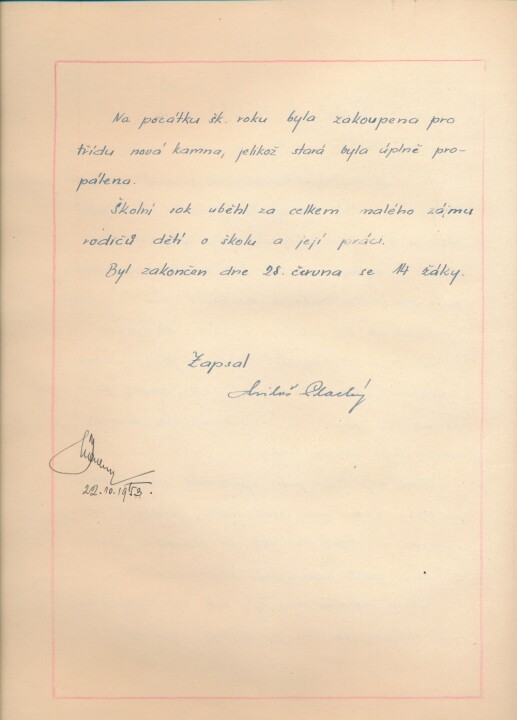 Na počátku šk. roku byla zakoupena pro
třídu nová kamna, jelikož stará byla úplně pro-
pálena.
Školní rok uběhl za celkem malého zájmu
rodičů dětí o školu a její práci.
Byl zakončen dne 28. června se 14 žáky.
Zapsal
Miloš Plachý
22.10.1953.